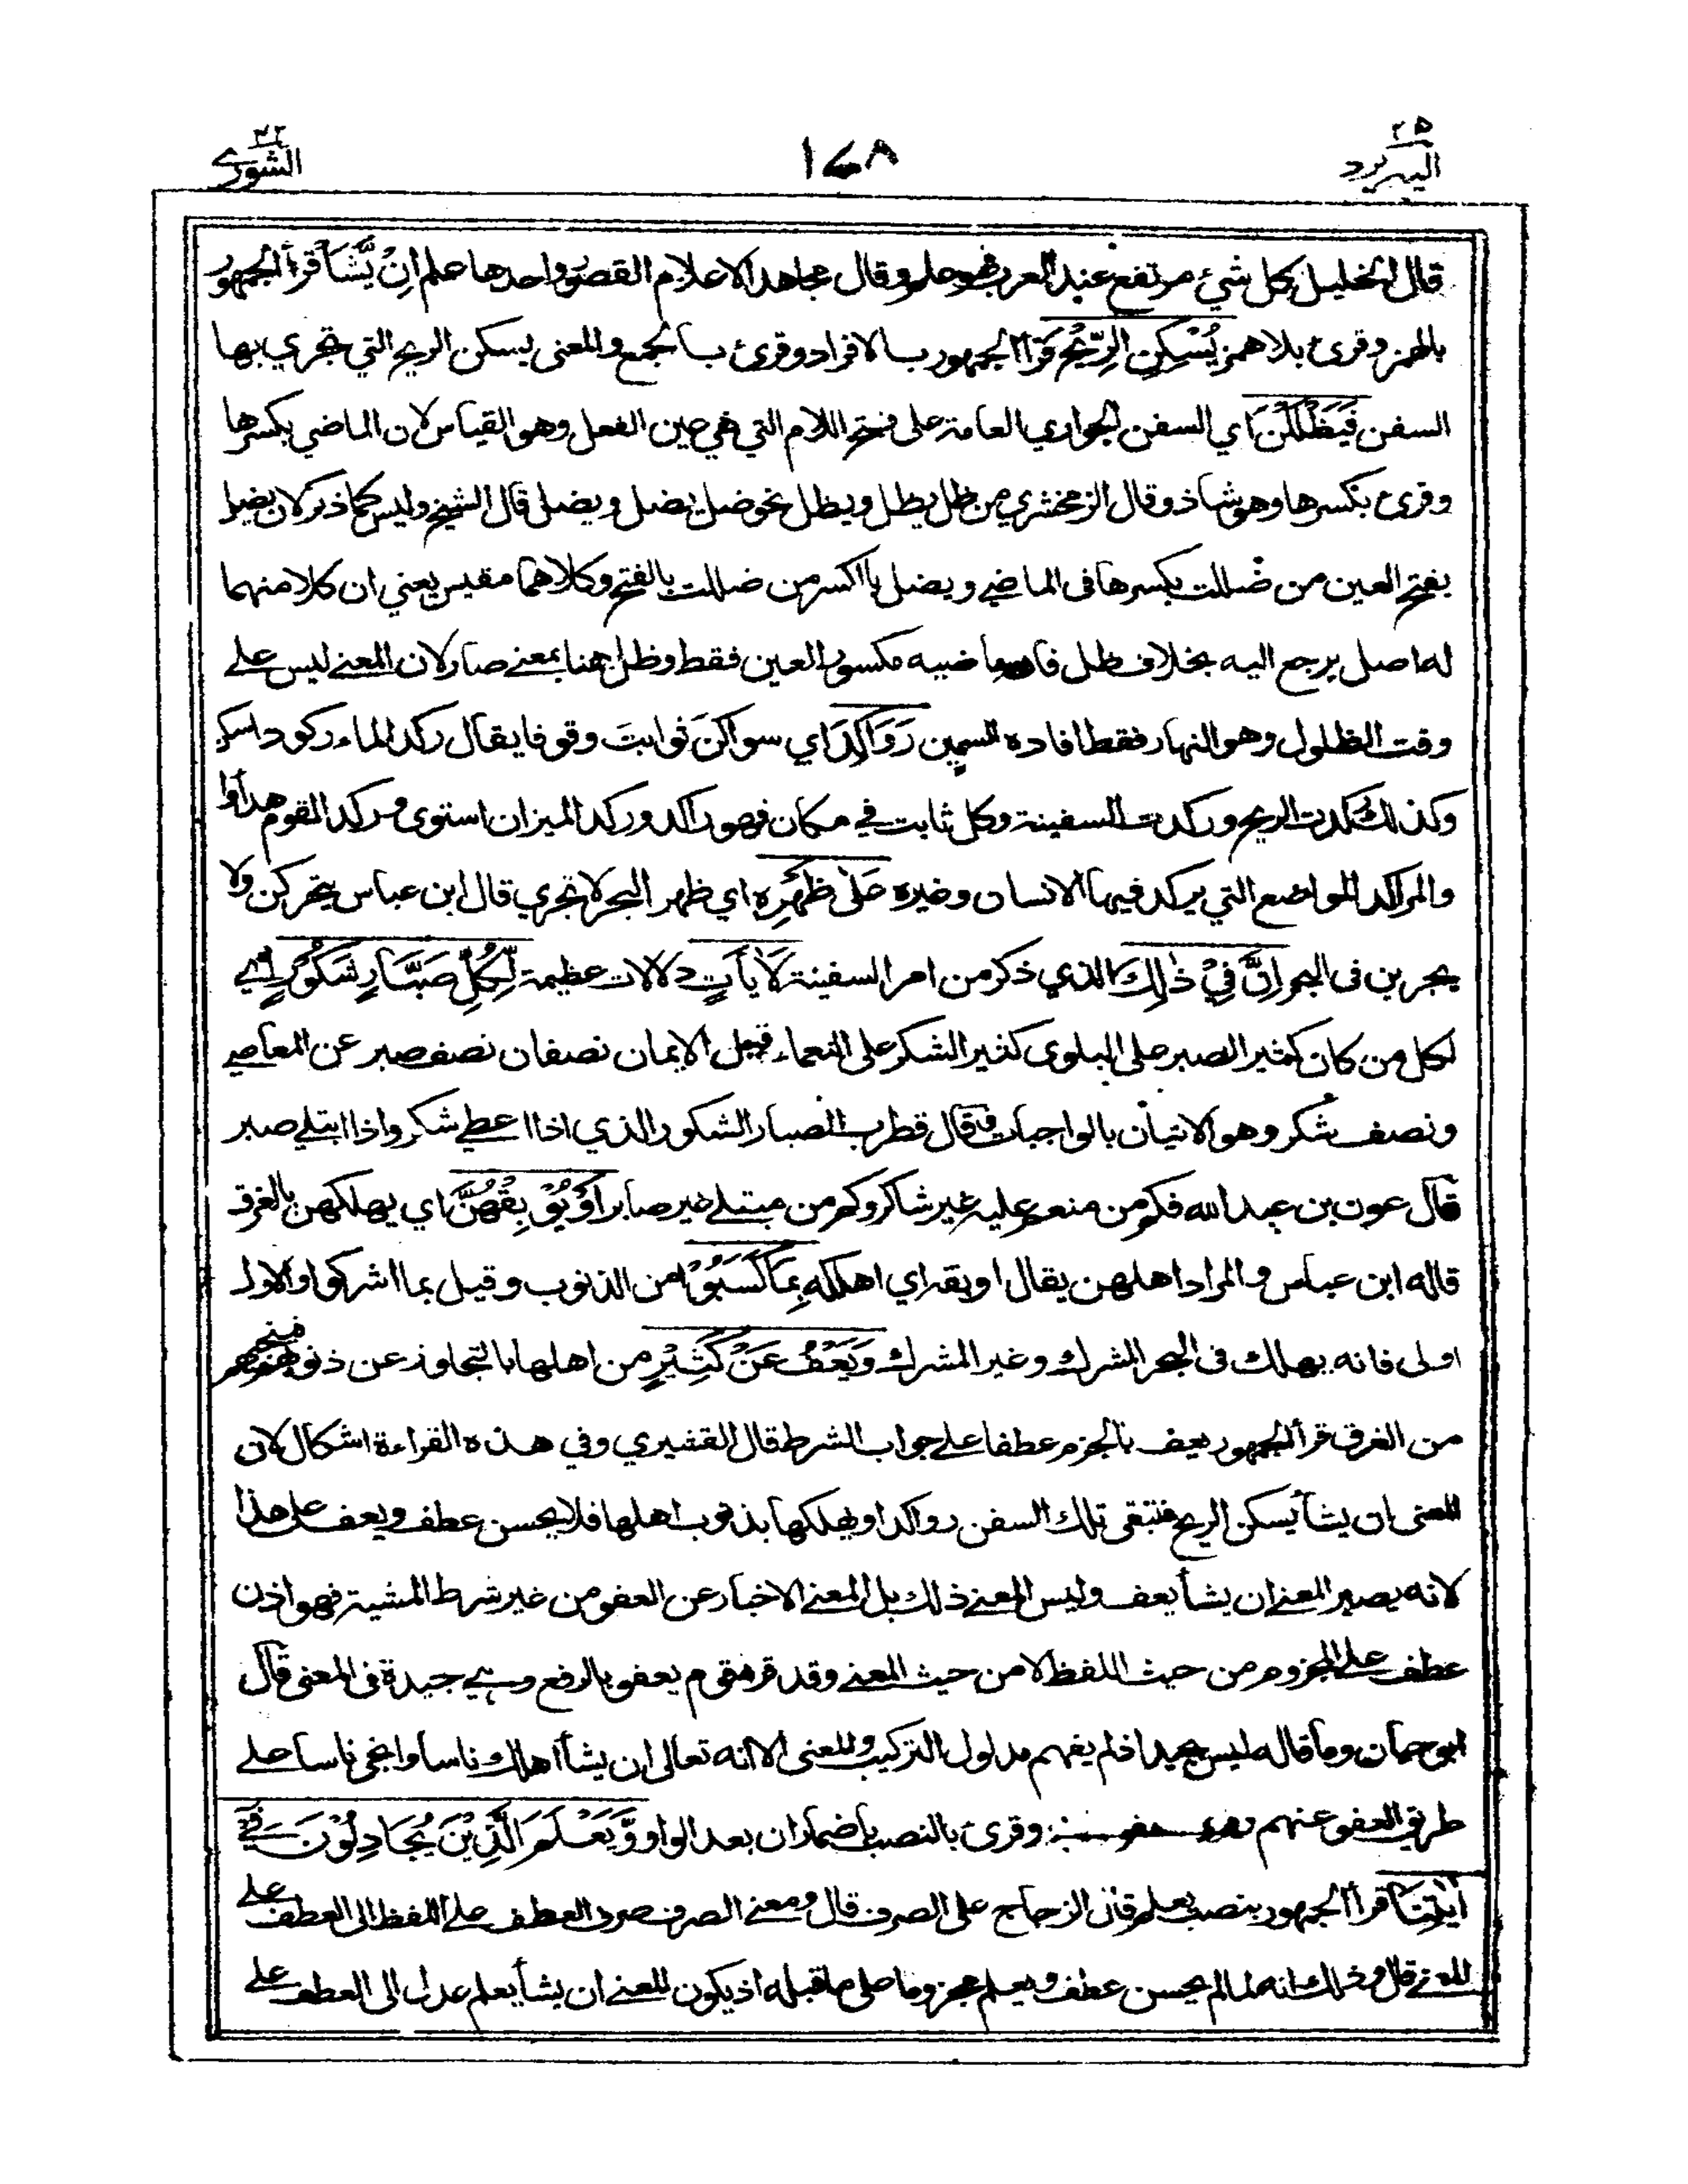 ٢٥
اليه يرد
١٧٨
٤٢
الشورى
قال الخليل كل شيء مرتفع عند العرب فهو علم وقال مجاهد الاعلام القصور واحدها علم اِنْ يَّشَأْ قرأ الجمهور
بالهمز وقرئ بلا همز يُسْكِنِ الرِّيْحَ قرأ الجمهور بالافراد وقرئ بالجمع والمعنى يسكن الريح التي تجري بها
السفن فَيَظْلَلْنَ اي السفن الجواري العامة على فتح اللام التي هي عين الفعل وهو القياس لان الماضي بكسرها
وقرئ بكسرها وهو شاذ وقال الزمخشري من ظل يظل ويظل نحو ضل يضل ويضل قال الشيخ وليس كما ذكر لان يضل
بفتح العين من ضللت بكسرها في الماضي ويضل بالكسر من ضللت بالفتح وكلاهما مقيس يعني ان كلا منهما
له اصل يرجع اليه بخلاف ظل فان ماضيه مكسور العين فقط وظل هنا بمعنى صار لان المعنى ليس على
وقت الظلول وهو النهار فقط افاده السمين رَوَاكِدَ اي سواكن ثوابت وقوفا يقال ركد الماء ركودا سكن
وكذلك ركدت الريح وركدت السفينة وكل ثابت في مكان فهو راكد وركد الميزان استوى وركد القوم هدأوا
والمراكد المواضع التي يركد فيها الانسان وغيره عَلٰى ظَهْرِهٖ اي ظهر البحر لا تجري قال ابن عباس يتحركن ولا
يجرين في البحر اِنَّ فِيْ ذٰلِكَ الذي ذكر من امر السفينة لَاٰيٰتٍ دلالات عظيمة لِّكُلِّ صَبَّارٍ شَكُوْرٍ اي
لكل من كان كثير الصبر على البلوى كثير الشكر على النعماء قيل الايمان نصفان نصف صبر عن المعاصي
ونصف شكر وهو الاتيان بالواجبات قال قطرب الصبار الشكور الذي اذا اعطي شكر واذا ابتلي صبر
قال عون بن عبد الله فكم من منعم عليه غير شاكر وكم من مبتلى غير صابر اَوْ يُوْبِقْهُنَّ اي يهلكهن بالغرق
قاله ابن عباس والمراد اهلهن يقال اوبقه اي اهلكه بِمَا كَسَبُوْا من الذنوب وقيل بما اشركوا والاول
اولى فانه يهلك في البحر المشرك وغير المشرك وَيَعْفُ عَنْ كَثِيْرٍ من اهلها بالتجاوز عن ذنوبهم فينجيهم
من الغرق قرأ الجمهور يعف بالجزم عطفا على جواب الشرط قال القشيري وفي هذه القراءة اشكال لان
المعنى ان يشأ يسكن الريح فتبقى تلك السفن رواكد او يهلكها بذنوب اهلها فلا يحسن عطف ويعف على هذا
لانه يصير المعنى ان يشأ يعف وليس المعنى ذلك بل المعنى الاخبار عن العفو من غير شرط المشية فهو اذن
عطف على المجزوم من حيث اللفظ لا من حيث المعنى وقد قرء قوم يعفو بالرفع وهي جيدة في المعنى قال
ابو حيان وما قاله ليس بجيد اذ لم يفهم مدلول التركيب والمعنى الا انه تعالى ان يشأ اهلك ناسا وانجى ناسا على
طريق العفو عنهم وقرئ بالنصب باضمار ان بعد الواو وَّيَعْلَمَ الَّذِيْنَ يُجَادِلُوْنَ فِيْ
اٰيٰتِنَا قرأ الجمهور بنصب يعلم قال الزجاج على الصرف قال ومعنى الصرف صرف العطف على اللفظ الى العطف على
المعنى قال وذلك انه لما لم يحسن عطف ويعلم مجزوما على ما قبله اذ يكون المعنى ان يشأ يعلم عدل الى العطف على